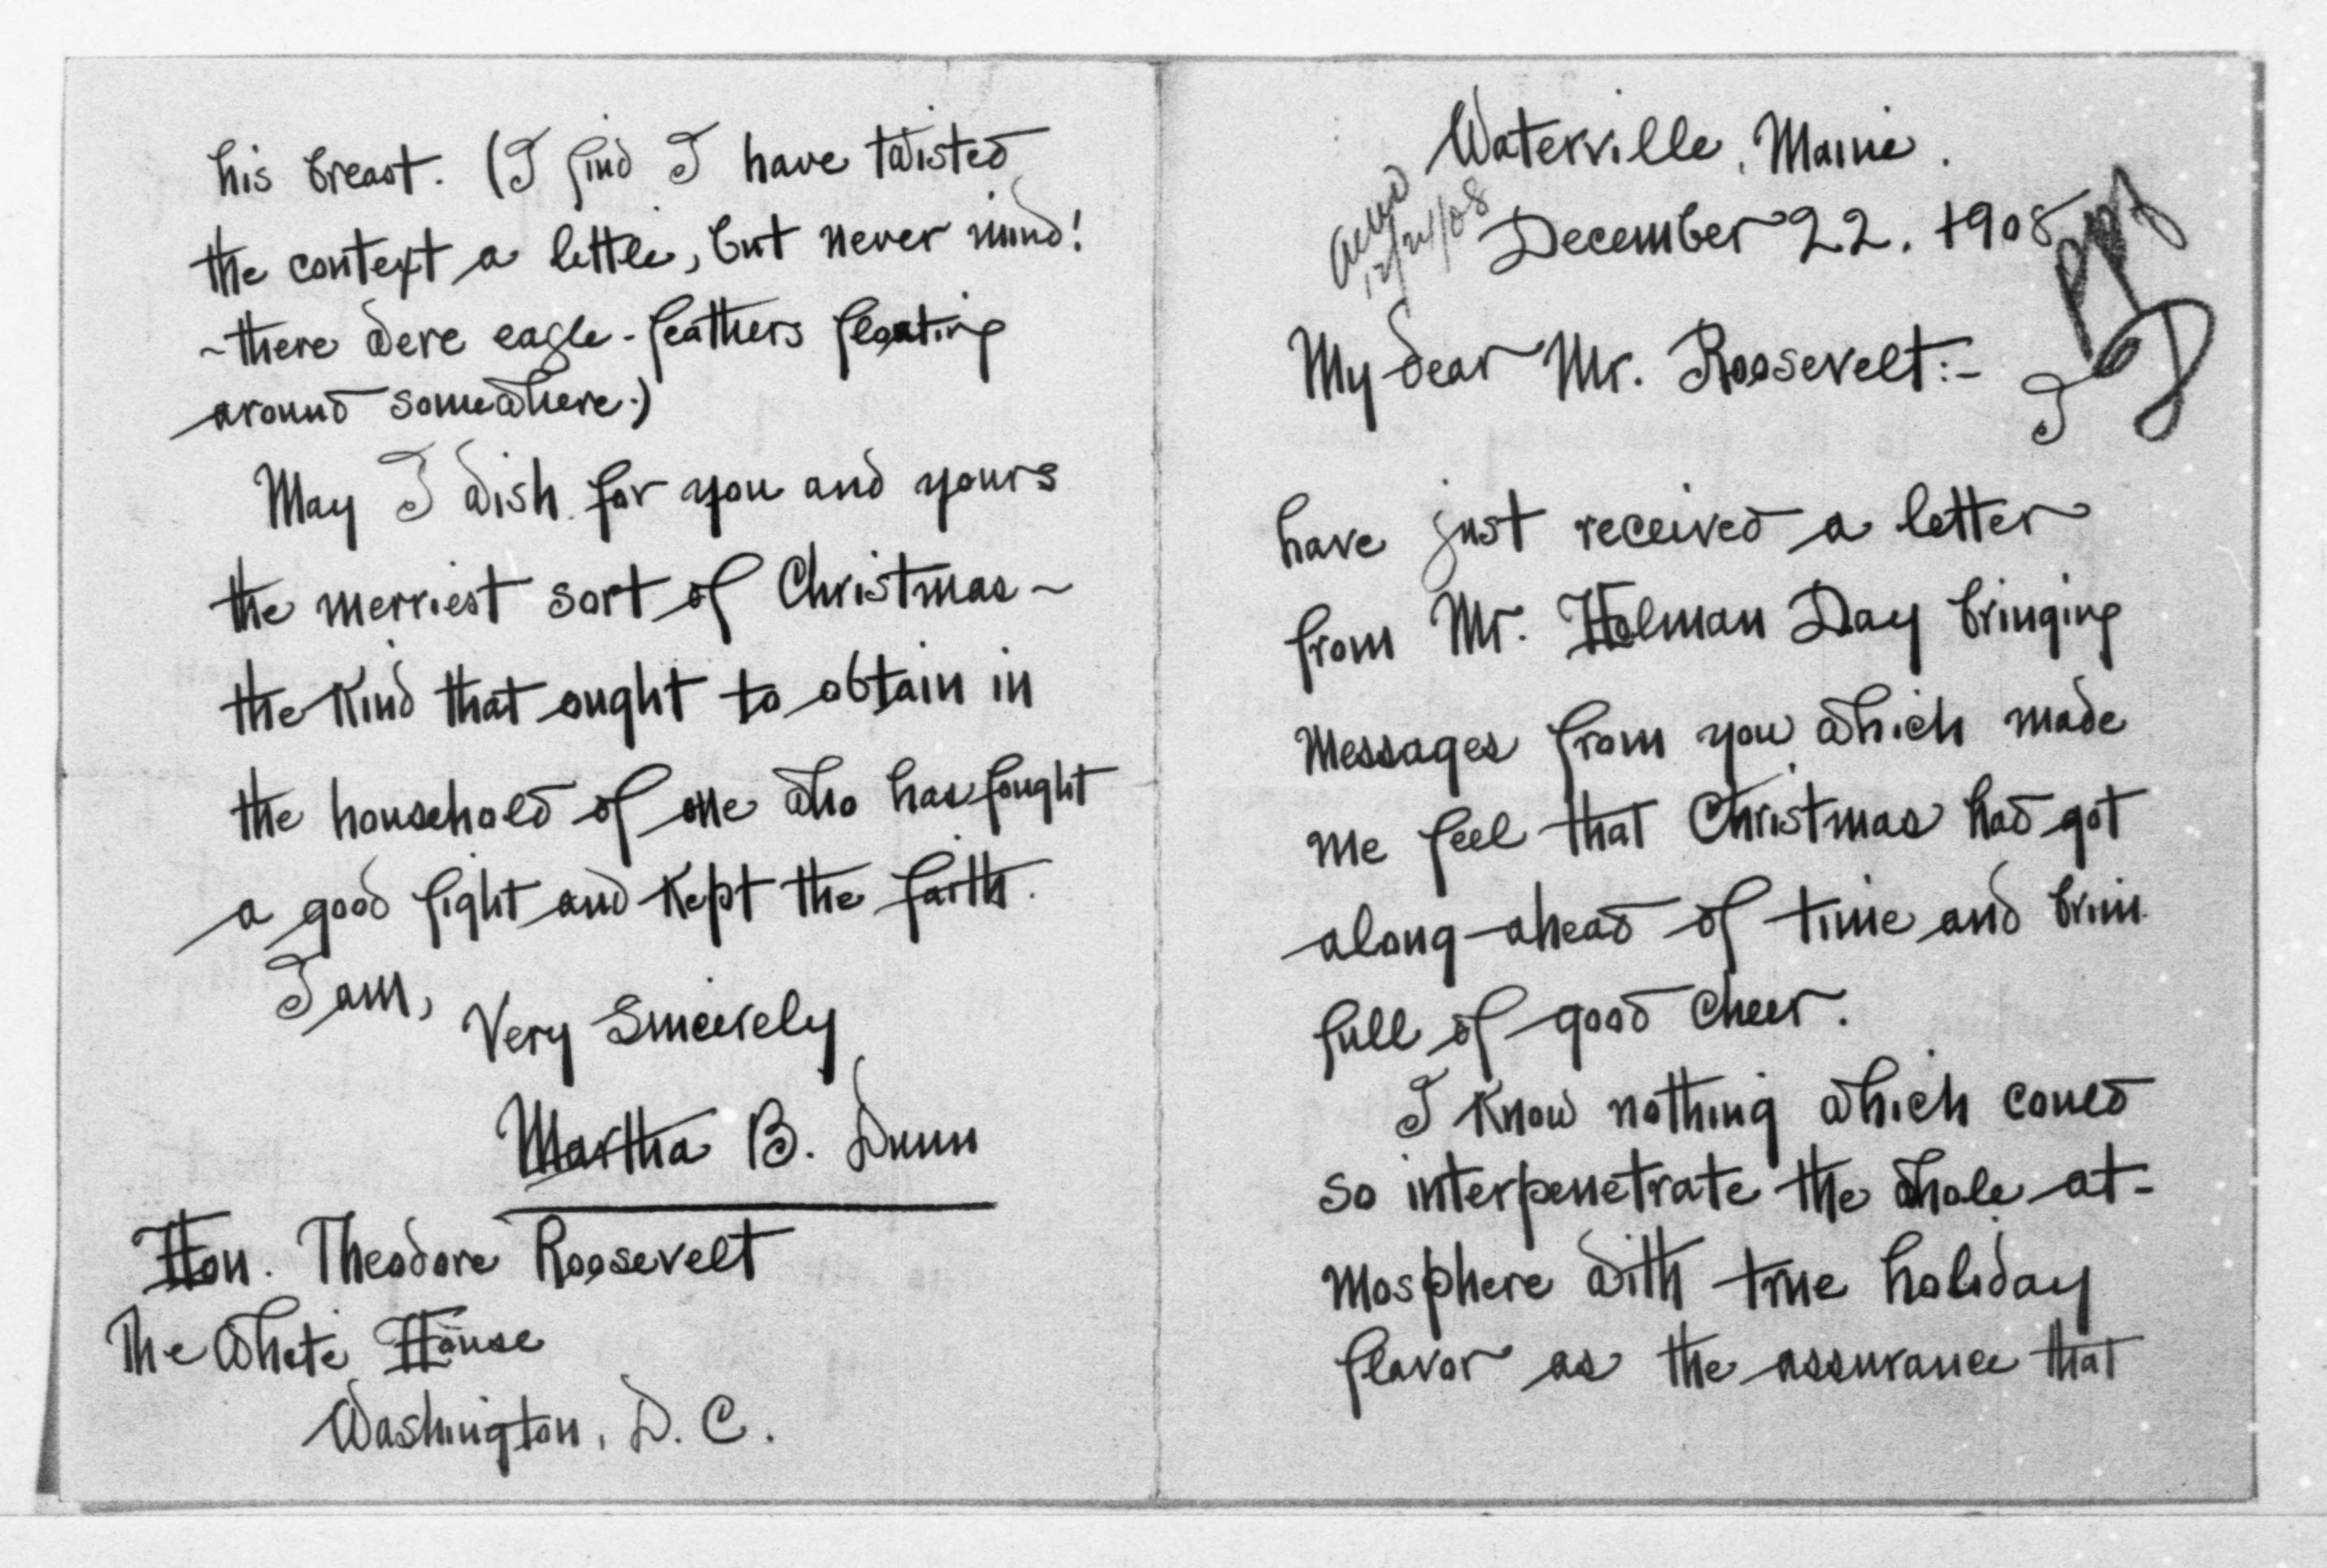 his breast. (I find I have twisted
the context a little, but never mind!
~there were eagle-feathers floating
around somewhere.)
May I wish for you and yours
the merriest sort of Christmas~
the kind that ought to obtain in
the household of one who has fought
a good fight and kept the faith.
I am,
Very Sincerely
Martha B. Dunn
Hon. Theodore Roosevelt
The White House
Washington, D. C.
Waterville, Maine.
12/24/08
December 22, 1908
PPF
My dear Mr. Roosevelt:-
I
have just received a letter
from Mr. Holman Day bringing
messages from you which made
me feel that Christmas had got
along ahead of time and brim
full of good cheer.
I know nothing which could
so interpenetrate the whole at-
mosphere with true holiday
flavor as the assurance that